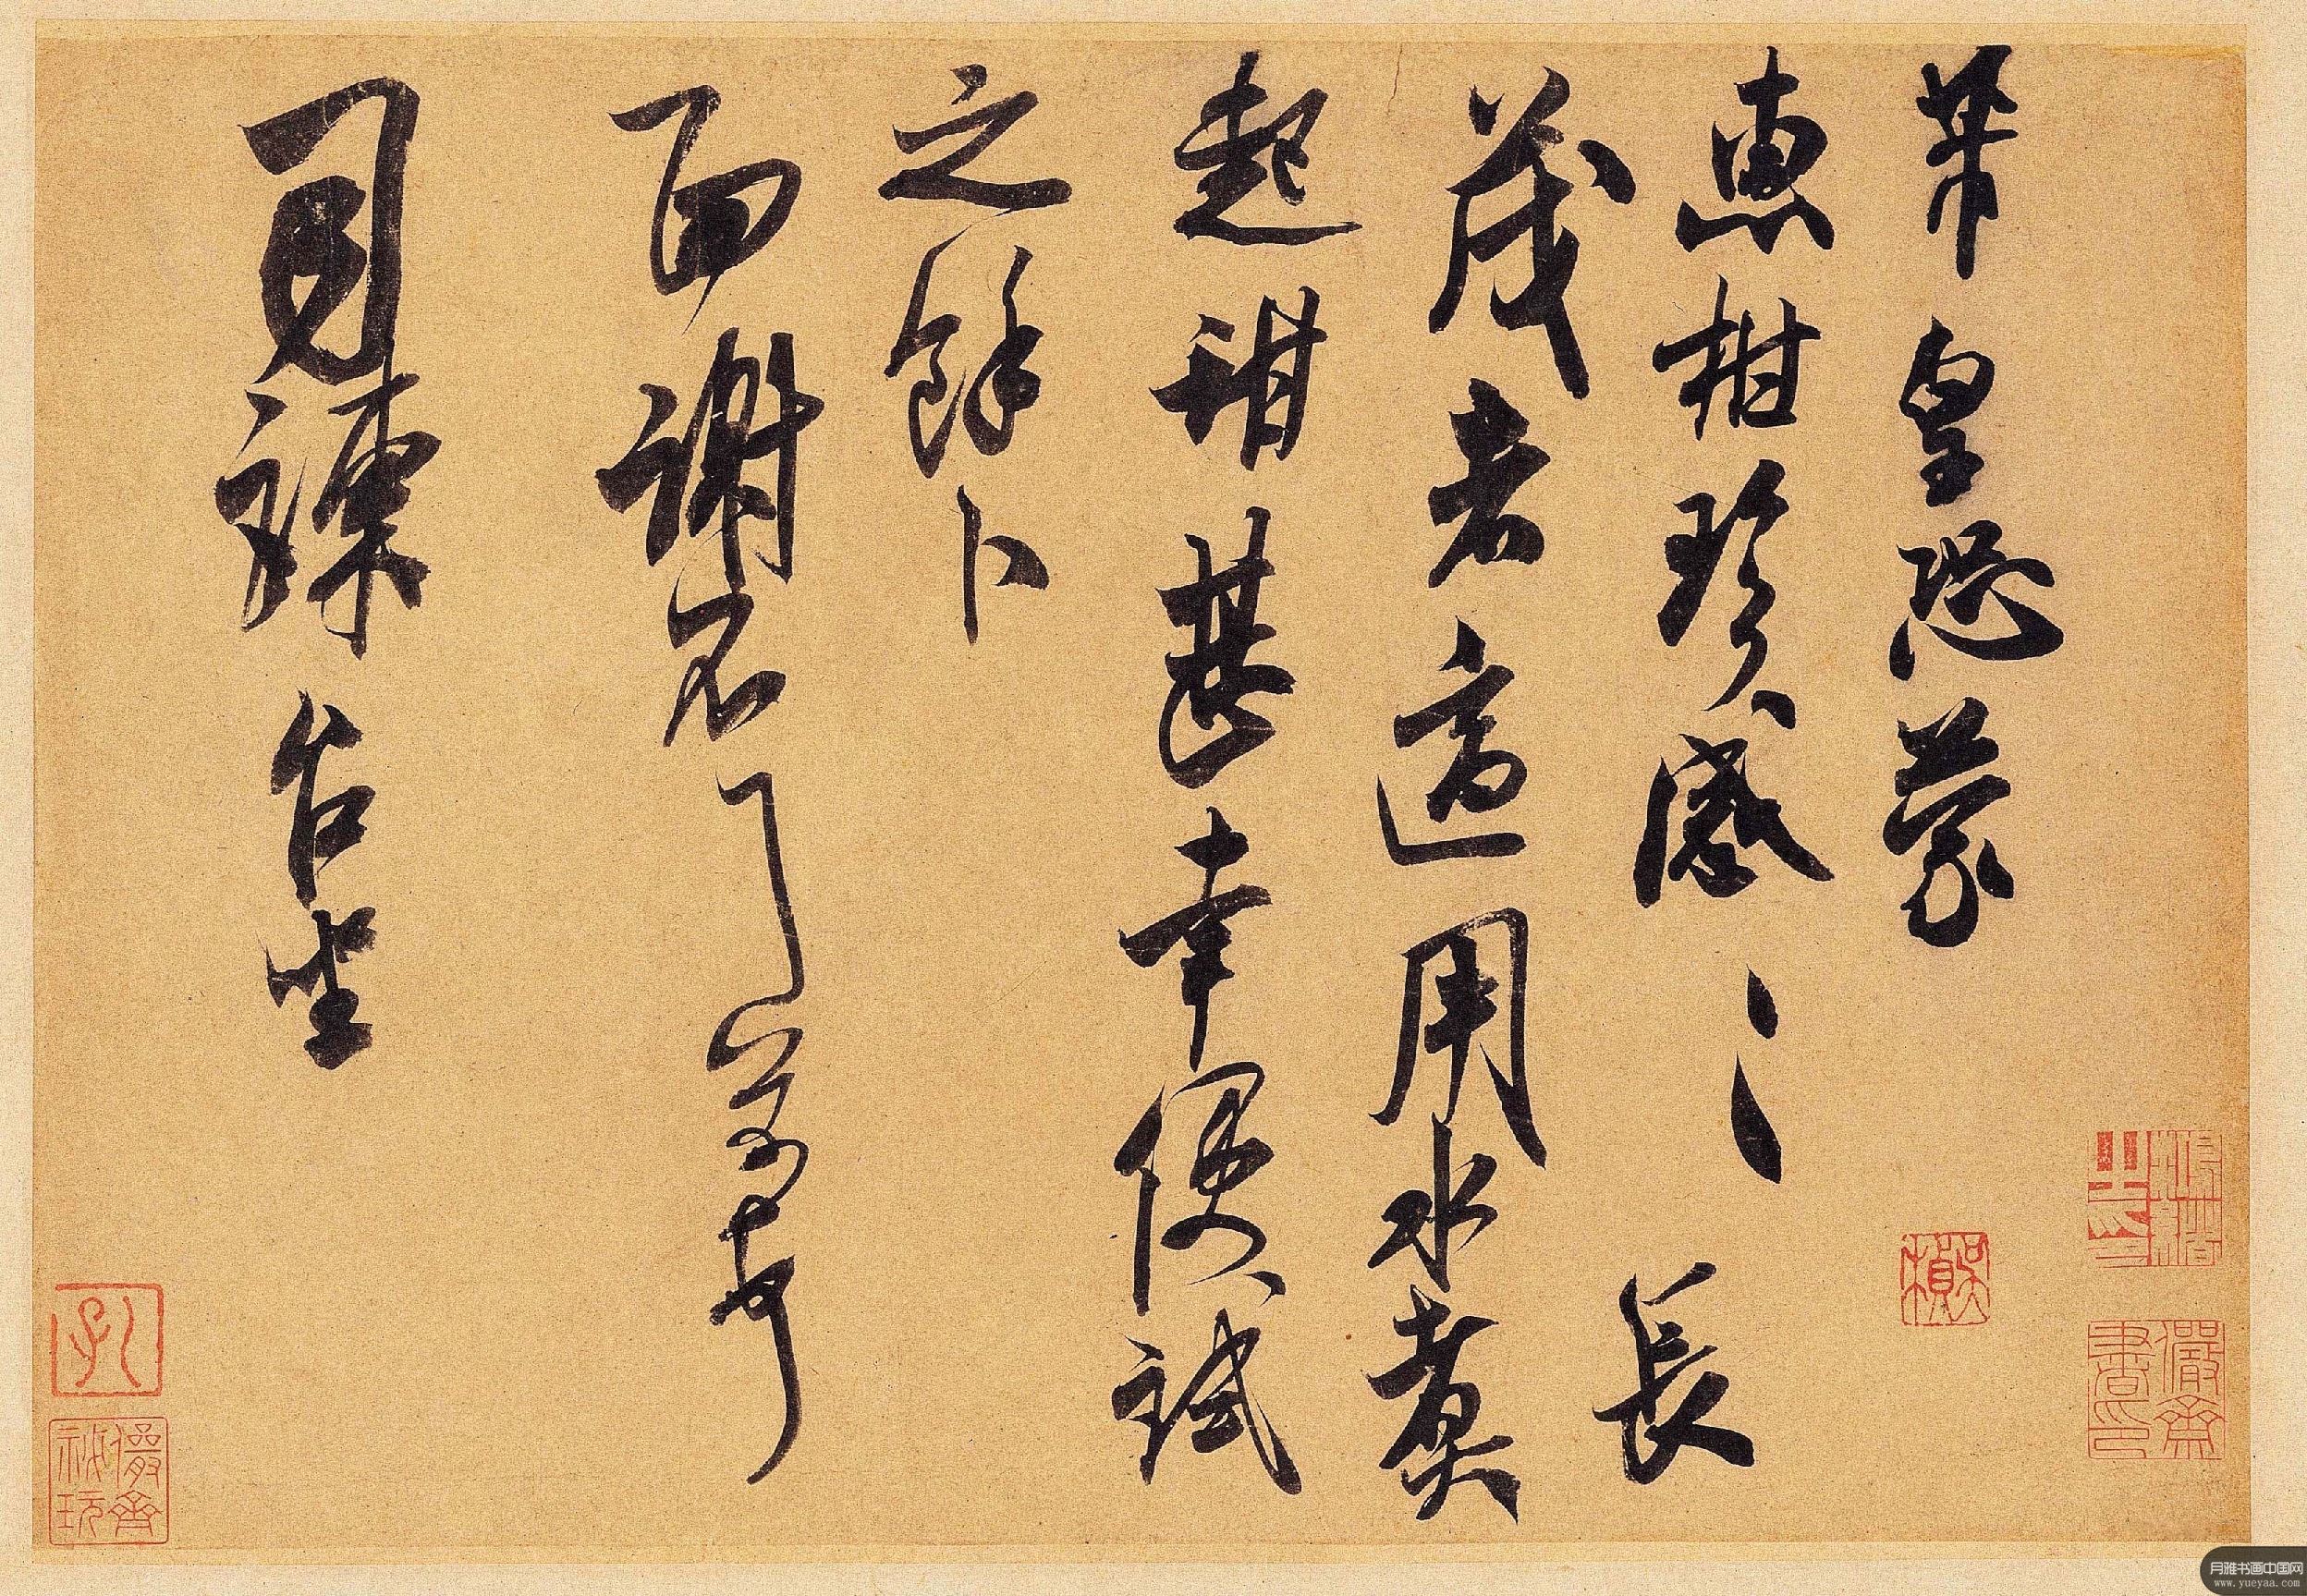 芾皇恐蒙
惠柑珍感〻〻長
茂者適用水煮
起甜甚幸便試
之餘卜
面謝不芾頓首
司諫台坐
鴻緒之印
吳楨
儼齋
儼齋祕玩
月雅书画中国网
www.yueyaa.com